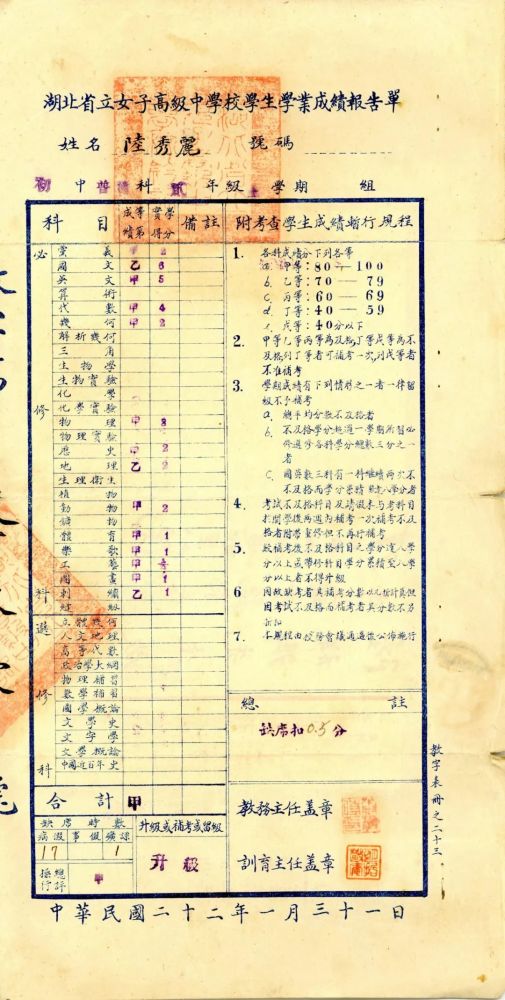 湖北省立女子高級中學校學生學業成績報告單
姓名 陸秀麗 號碼
初 中普通科 貳 年級 上 學期 組
科 目 成績 等第 實得 學分 備註
必 修 科
黨 義 甲 2
國 文 乙 6
英 文 甲 5
算 術
代 數 甲 4
幾 何 甲 2
解析幾何
三 角
生物學
生物實驗
化 學
化學實驗
物 理 甲 3
物理實驗
歷 史 甲 2
地 理 乙 2
生理衛生
植 物
動 物 甲 2
礦 物
體 育 甲 1
樂 歌 甲 1
工 藝 甲
圖 畫 甲 1
刺 繡 乙 1
選 修 科
立體幾何
人文地理
高等代數
政治學大綱
物理補習
數學補習
國學概論
文學史
文字學
文學概論
中國近百年史
合 計 甲
缺席時數
病假 事假 曠課
17 1
操行 總評 甲
升級或補考或留級
升級
附考查學生成績暫行規程
1. 各科成績分下列各等
a. 甲等：80 — 100
b. 乙等：70 — 79
c. 丙等：60 — 69
d. 丁等：40 — 59
e. 戊等：40分以下
2. 甲等乙等丙等為及格丁等戊等為不
及格列丁等者可補考一次列戊等者
不准補考
3. 學期成績有下列情形之一者一律留
級不予補考
a. 總平均分數不及格者
b. 不及格學分超過一學期所習必
修選修各科學分總數三分之一
者
c. 國英數三科有一科繼續兩次不
4. 考試不及格科目及請假未與考科目
於開學後兩週內補考一次補考不及
格者附學重修但不再行補考
5.
分以上或帶修科目學分累積至八學
分以上者不得升級
6
7. 本規程由校務會議通過後公佈施行
總 註
缺席扣0.5分
教務主任蓋章
訓育主任蓋章
數字表冊之二十三
中華民國二十二年一月三十一日